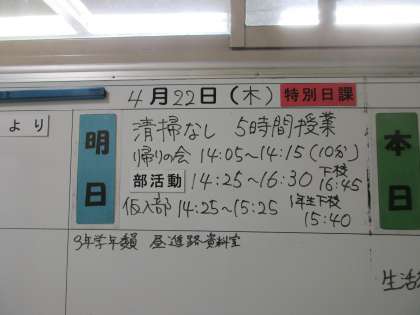 4月22日(木) 特別日課
より
明日
清掃なし 5時間授業
帰りの会 14:05〜14:15(10分)
部活動 14:25〜16:30 下校 16:45
仮入部 14:25〜15:25 1年生下校 15:40
3年学年委員 昼進路資料室
本日
生活